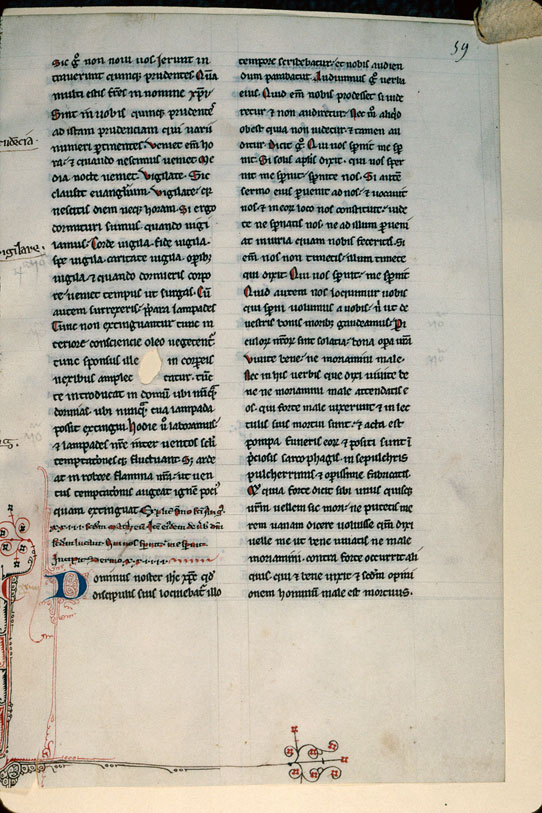 59
Sic g̊ non noui uos ierunt in
trauerunt quinq; prudentes. Q̃m
multi estis fr̃es in nomine xpĩ.
Sint in uobis quinq; prudentes.
ad istam prudenciam qui narii
numeri ꝑtinentes. veniet eñ ho
ra. ⁊ quando nescimus veniet. Me
dia nocte veniet. vigilate. Sic
clausit euangłium. vigilate. q̇
nescitis diem neq; horam. Si ergo
dormituri sumus. quando uigi
lamus. Corde uigila. fide vigila.
spe vigila. caritate vigila. opib;
uigila. ⁊ quando dormieris corpo
re. veniet tempus ut surgas. Cũ
autem surrexeris. p̃para lampades
Tunc non extinguantur tunc in
teriore consciencie oleo vegetent̃
tunc sponsus ille in corporeis
nexibus amplec tatur. tũc
te introducat in domũ ubi nũq̃
dormias. ubi nũq̃ tua lampada
possit extingui. hodie ũ laboramus
⁊ lampades nr̃e inter uentos sc̃li
temptationesq; fluctuant. S; arde
at in robore flamma nr̃a. ut uen
tus temptationis augeat ignẽ poci
quam extinguat
Incipit sermo
Dominus noster ihc xp̃c qđ
discipulis suis loquebat̃ illo
tempore scribebatur. et nobis audien
dum parabatur. Audiuimus g̊ verba
eius. Quid eñ nobis prodesset si uide
retur ⁊ non audiretur. Nec m̊ aliq̇d
obest quia non uidetur. ⁊ tamen au
ditur. Dicit g̊. Qui uos sp̃nit me sp̃
nit. Si solis apłis dixit. qui uos sper
nit me sp̃nit. sp̃nite nos. Si autẽ
sermo eius ꝑuenit ad nos. ⁊ uocauit
nos. ⁊ in eoꝝ loco nos constituit. uide
te ne sp̃natis nos. ne ad illum ꝑueni
at iniuria quam nobis feceritis. Si
eñ nos non timetis. illum timete
qui dixit Qui uos sp̃nit. me sp̃nit
Quid autem nos loquimur uobis
qui sp̃ni volumus a uobis. ñ ut de
uestris bonis morib; gaudeamus. Pi
culoꝝ nr̃oꝝ sint solacia. bona opa ur̃a
viuite bene. ne moriamini male.
Nec in his verbis que dixi uiuite be
ne ne moriamini male attendatis e
os. qui forte male uixerunt. ⁊ in lec
tulis suis mortui sunt. ⁊ acta est
pompa funeris eoꝝ ⁊ positi sunt ĩ
p̃ciosis sarcophagis. in sepulchris
pulcherrimis ⁊ opissime fabricatis
⁊ quia forte dicit sibi unus quisq;
urm̃ uellem sic mori. ne putetis me
rem uanam dicere uoluisse qm̃ dixi
uelle me ut bene uiuatis ne male
moriamini. contra forte occurrit ali
quis. qui ⁊ bene uixit ⁊ scđm opini
onem hominũ male est mortuus.